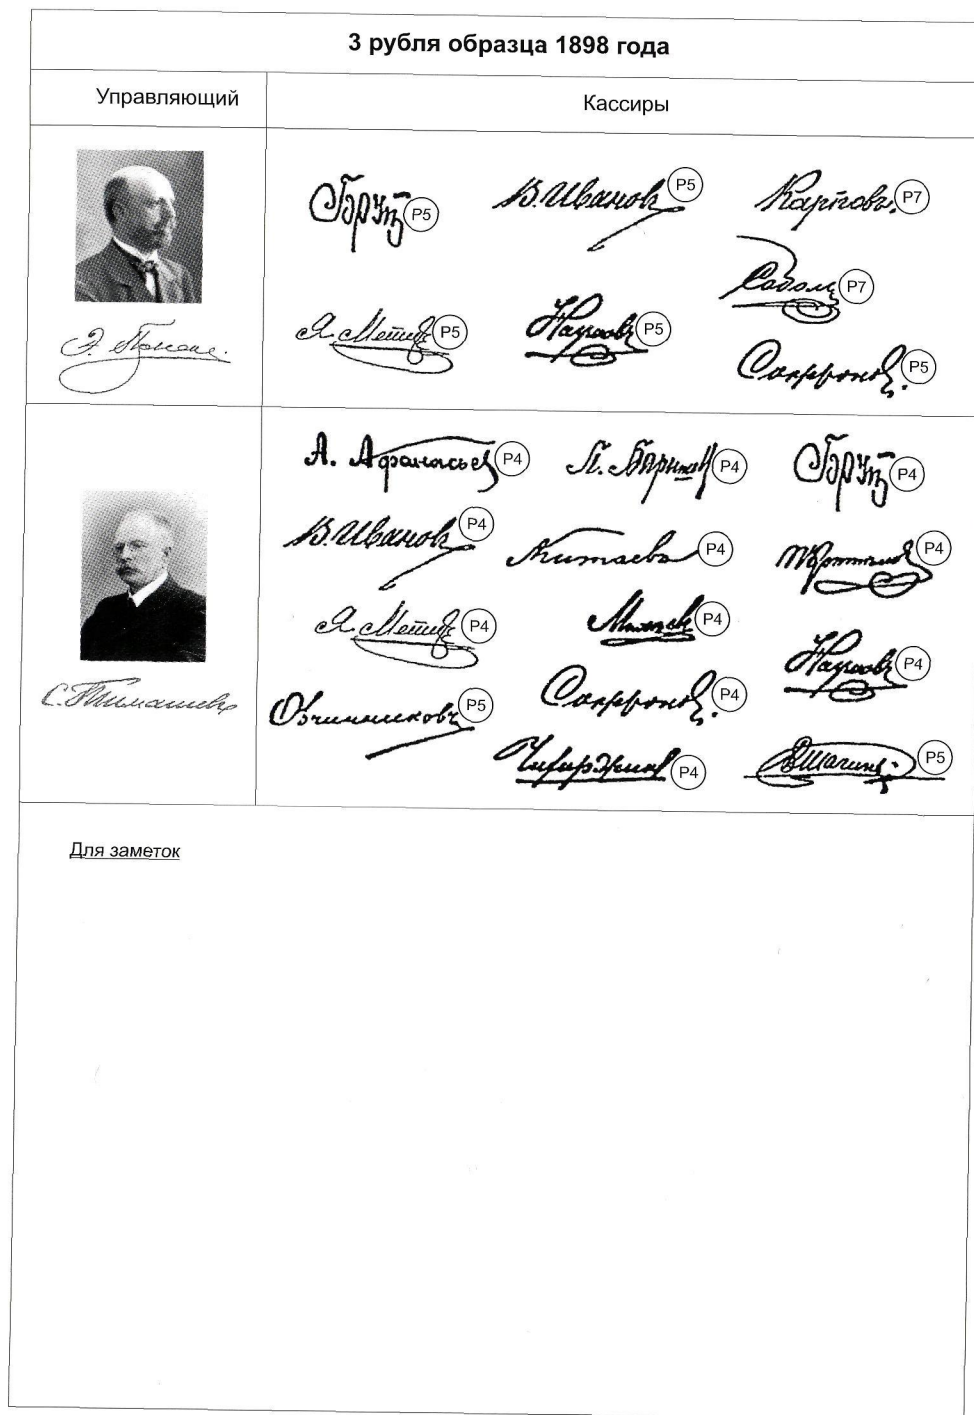 3 рубля образца 1898 года
Управляющий
Кассиры
Э. Плеске.
Брут P5
В. Ивановъ P5
Карповъ. P7
Соболь P7
Я. Метцъ P5
Наумовъ P5
Сафронов. P5
С. Тимашевъ
А. Афанасьев P4
П. Барышев P4
Брут P4
В. Ивановъ P4
Китаевъ P4
P4
Я. Метцъ P4
P4
Наумовъ P4
Овчинниковъ P5
Сафронов. P4
Чихиржин P4
В Шагинъ P5
Для заметок